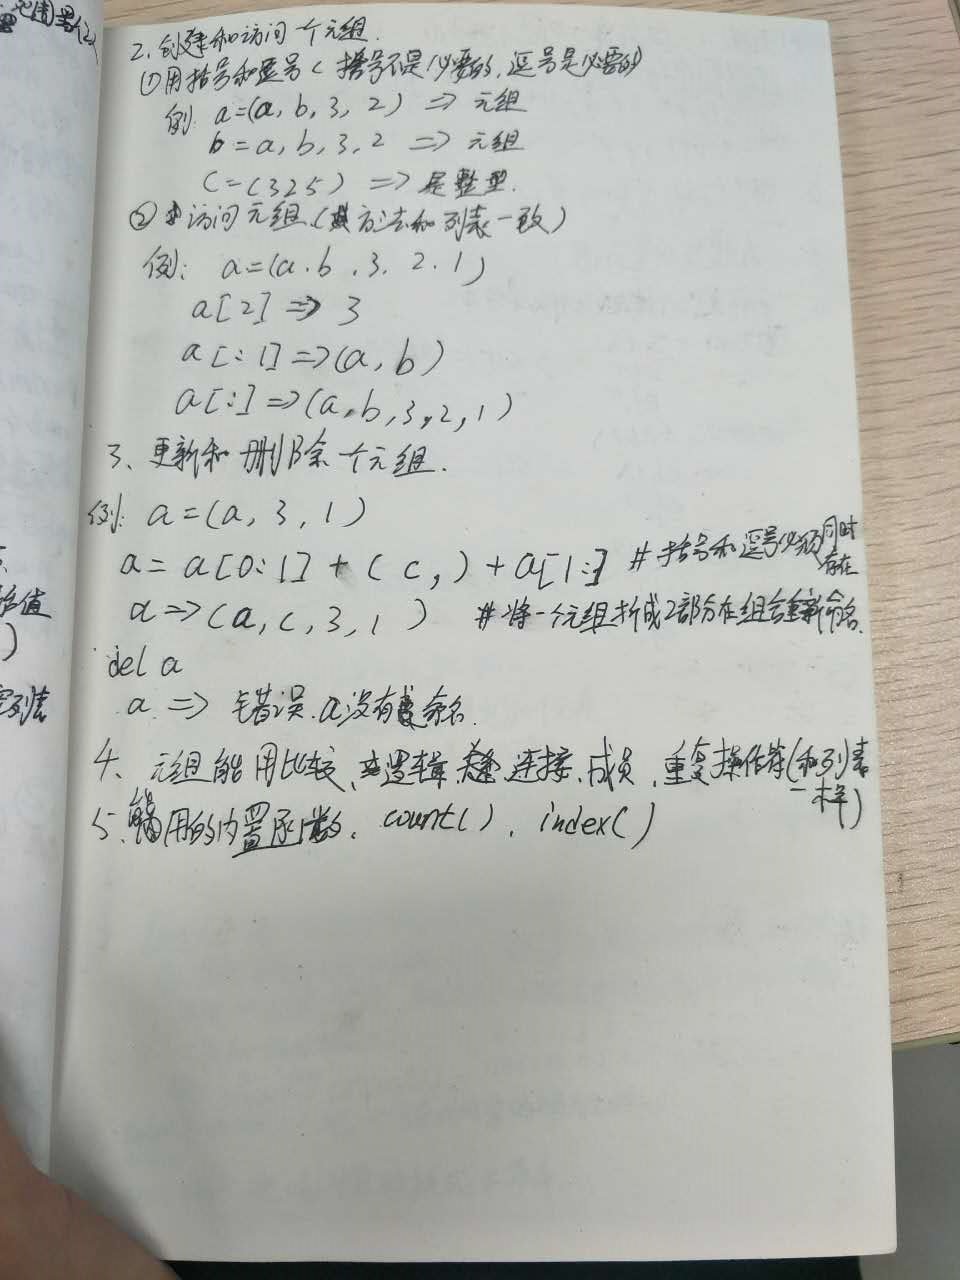 2.创建和访问一个元组.
①用括号和逗号(括号不是必要的,逗号是必要的)
例: a=(a,b,3,2) => 元组
b=a,b,3,2 => 元组
c=(325) => 是整型.
②访问元组(其方法和列表一致)
例: a=(a.b,3.2.1)
a[2] => 3
a[:1] =>(a,b)
a[:] =>(a,b,3,2,1)
3、更新和删除一个元组.
例: a=(a,3,1)
a=a[0:1]+(c,)+a[1:] #括号和逗号必须同时存在
a =>(a,c,3,1) #将一个元组拆成2部分在组合重新命名.
del a
a => 错误.a没有命名.
4、元组能用比较、逻辑、连接.成员,重复操作符(和列表一样)
5、能用的内置函数、count(),index()
值
)
列表